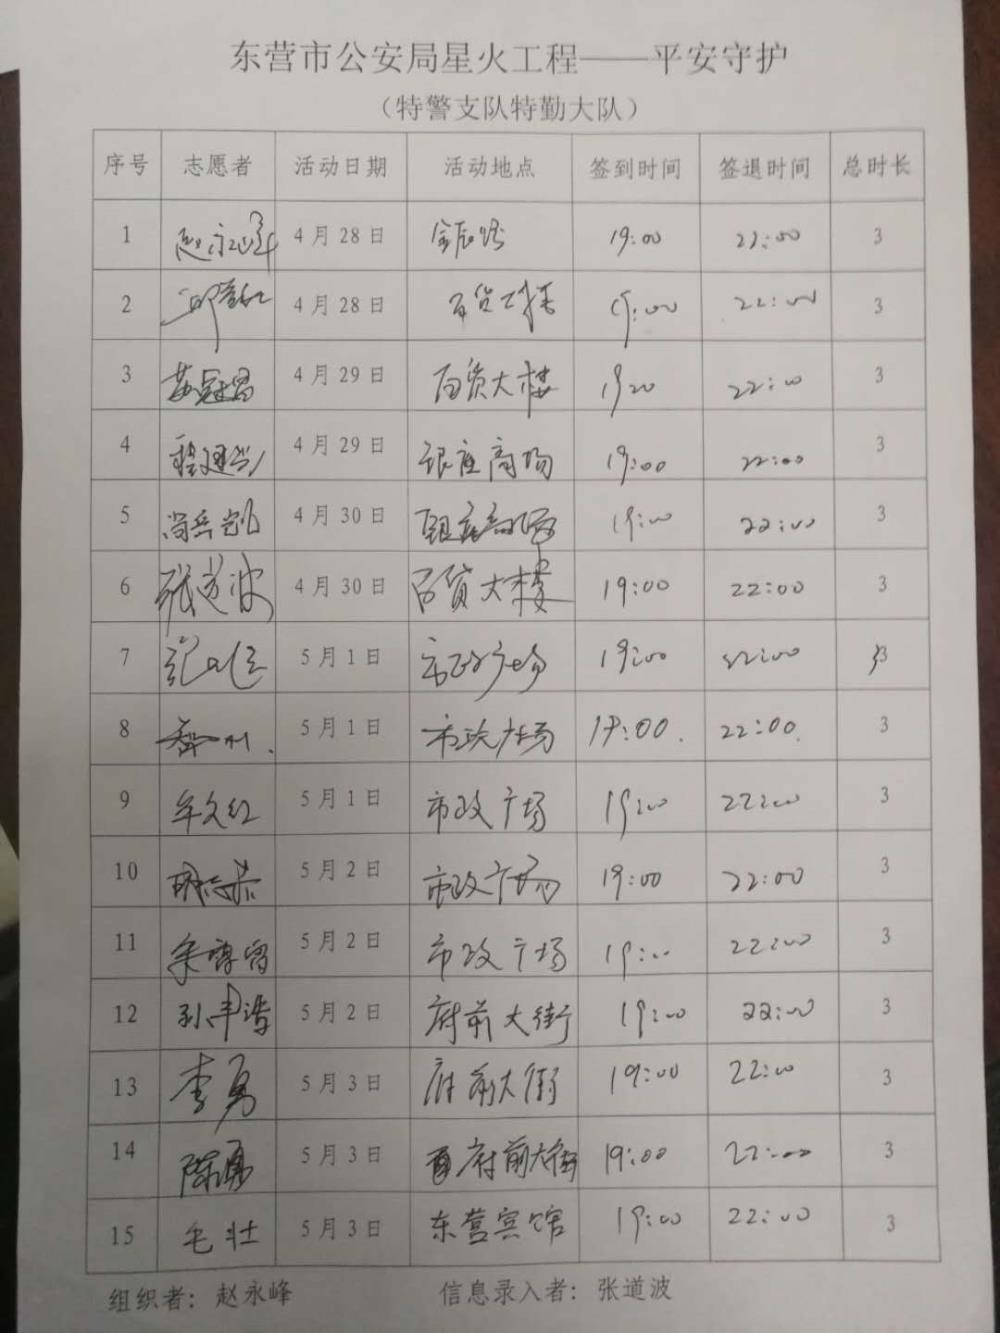 东营市公安局星火工程——平安守护
（特警支队特勤大队）
序号 志愿者 活动日期 活动地点 签到时间 签退时间 总时长
1 赵永峰 4月28日 金辰路 19:00 22:00 3
2 邱 4月28日 百货大楼 19:00 22:00 3
3 4月29日 百货大楼 19:00 22:00 3
4 程建 4月29日 银座商场 19:00 22:00 3
5 尚岳凯 4月30日 银座商场 19:00 22:00 3
6 张道波 4月30日 百货大楼 19:00 22:00 3
7 5月1日 市政广场 19:00 22:00 3
8 5月1日 市政广场 19:00. 22:00. 3
9 牟久红 5月1日 市政广场 19:00 22:00 3
10 5月2日 市政广场 19:00 22:00 3
11 5月2日 市政广场 19:00 22:00 3
12 孙丰浩 5月2日 府前大街 19:00 22:00 3
13 李勇 5月3日 府前大街 19:00 22:00 3
14 陈勇 5月3日 府前大街 19:00 22:00 3
15 毛壮 5月3日 东营宾馆 19:00 22:00 3
组织者：赵永峰 信息录入者：张道波